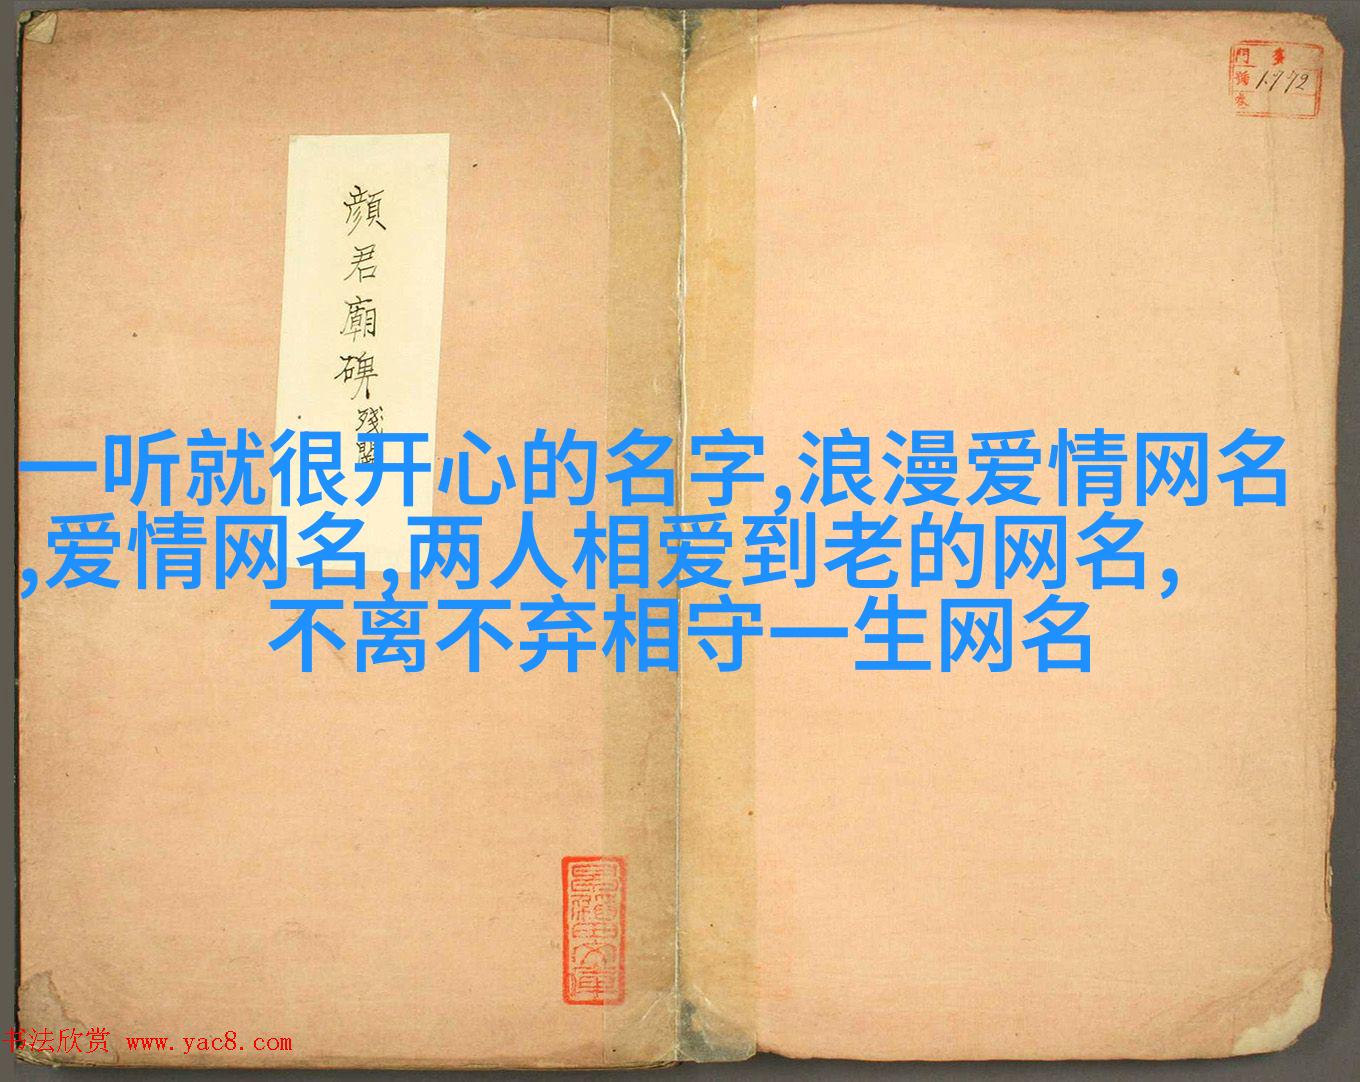 門 號 1772
卷
顔君廟碑残闕
一听就很开心的名字,浪漫爱情网名
,爱情网名,两人相爱到老的网名,
不离不弃相守一生网名
书法欣赏 www.yac8.com